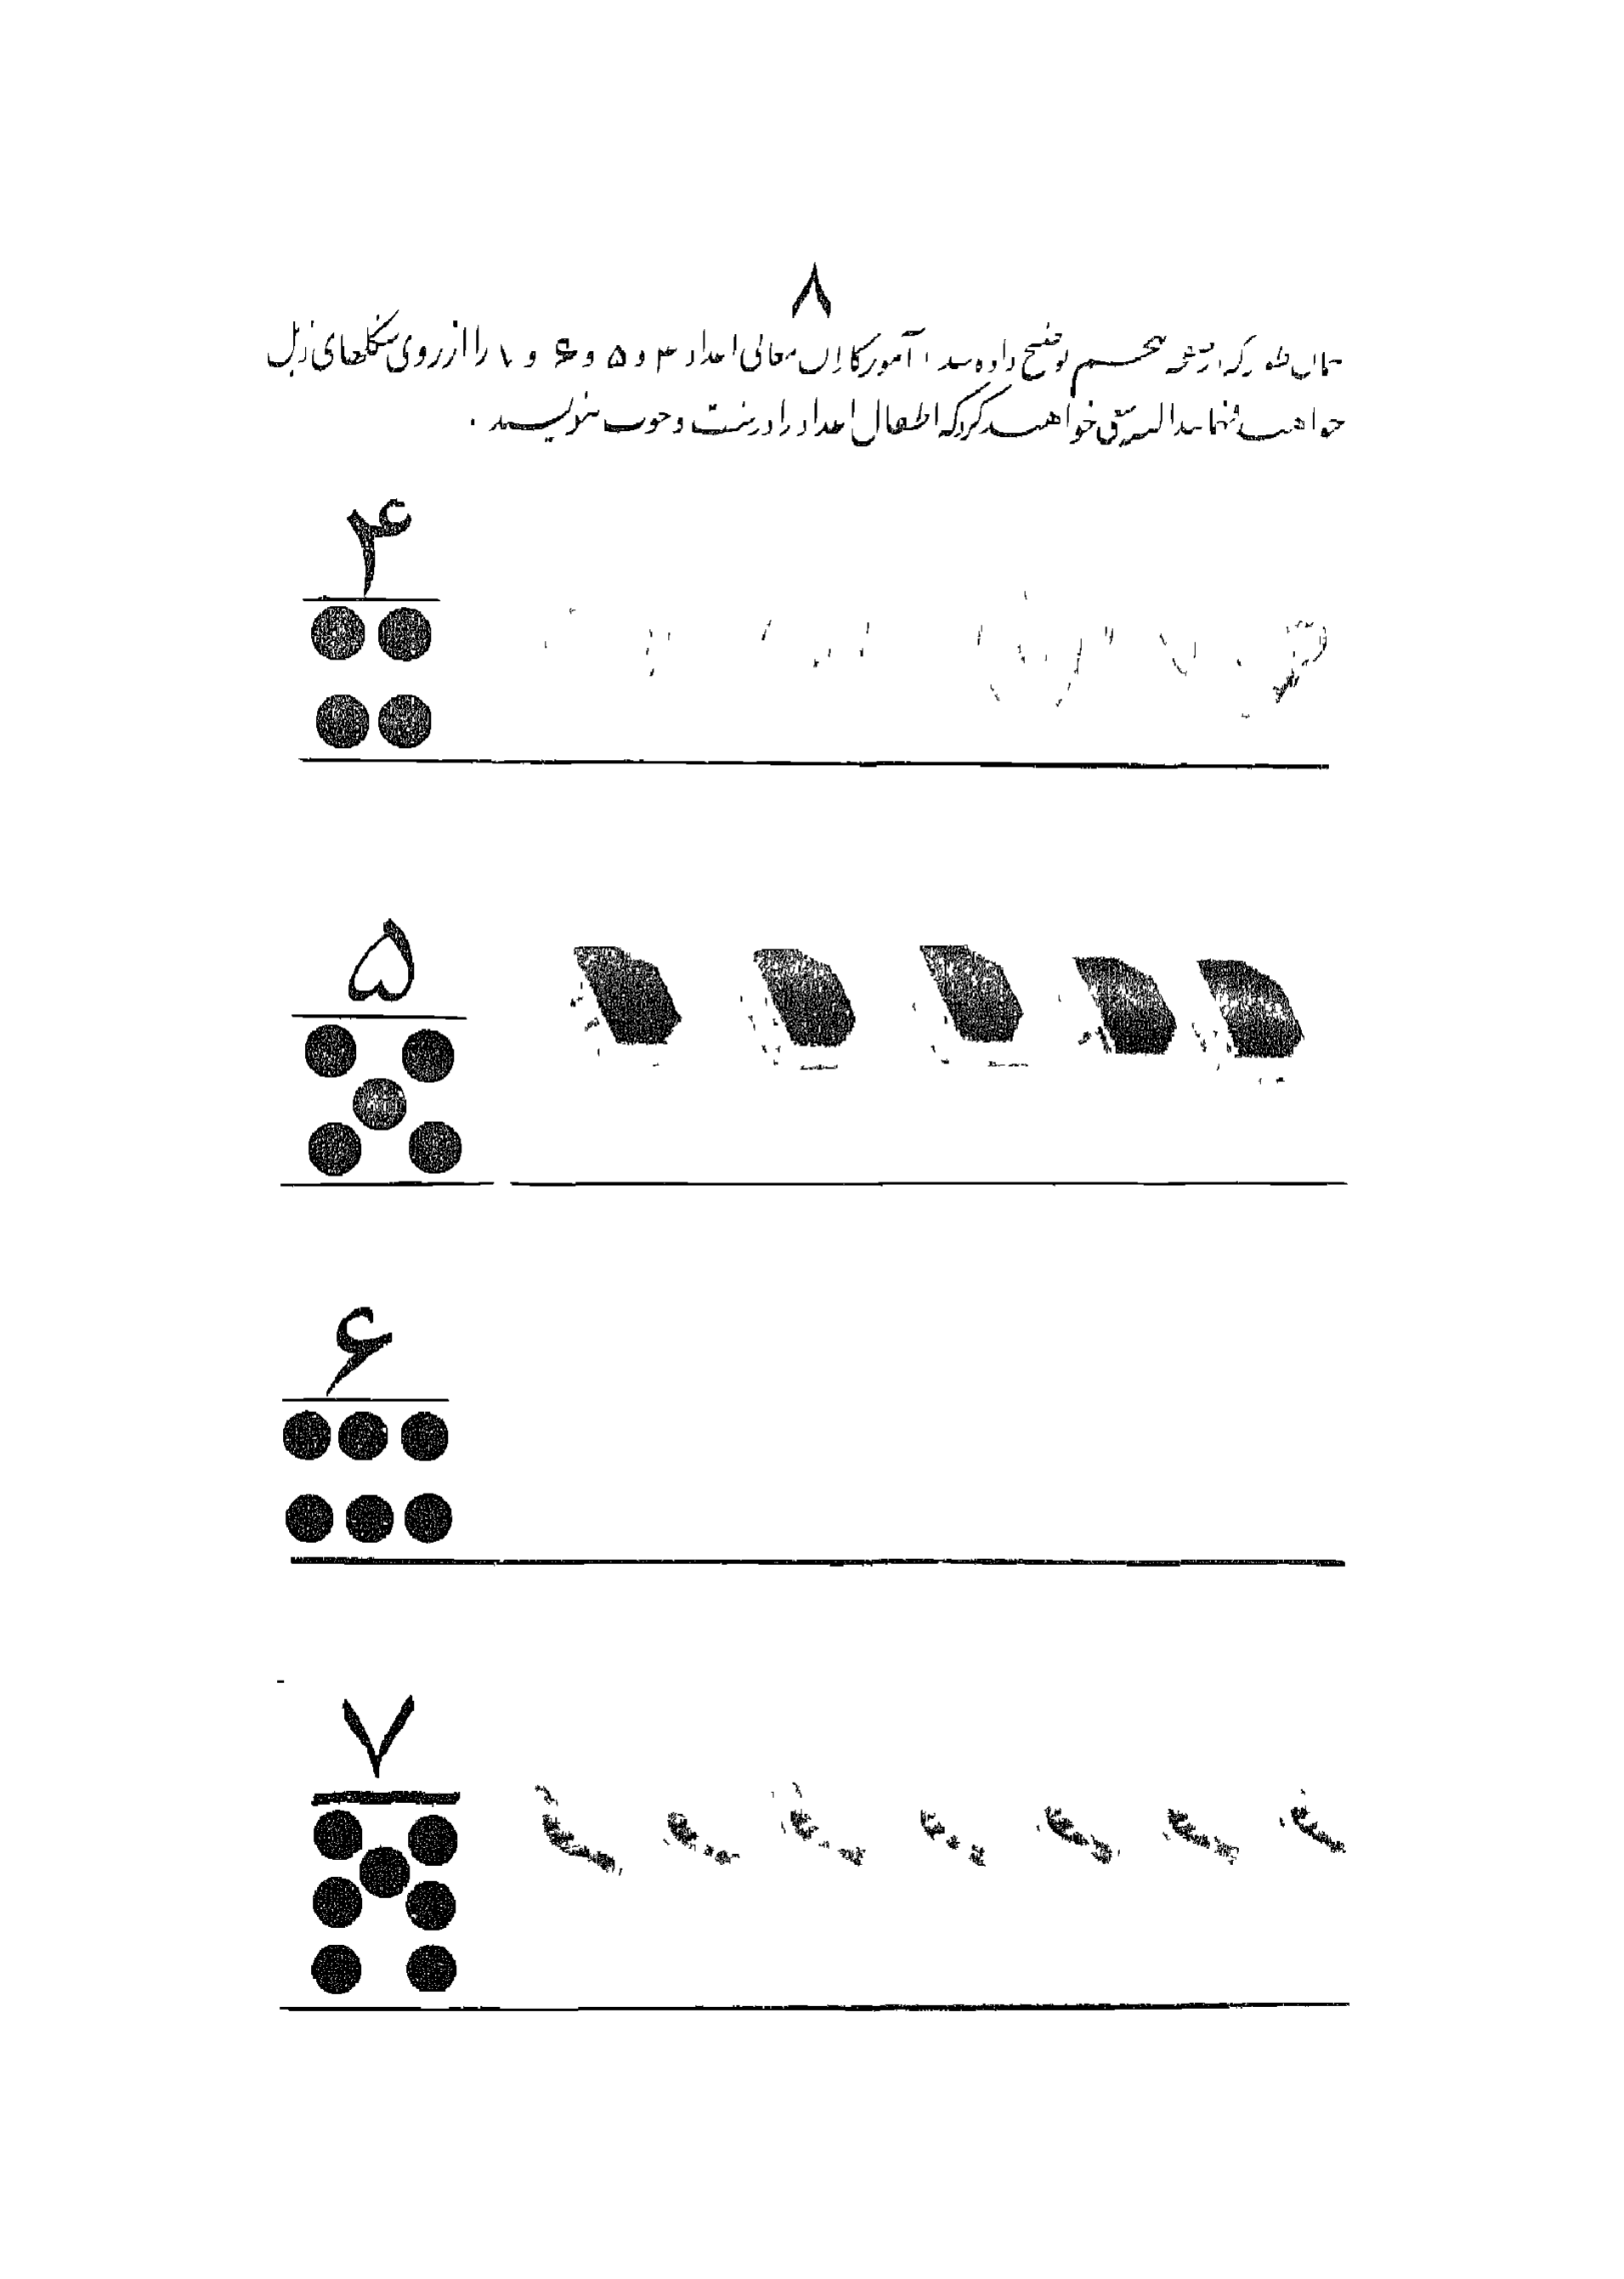 ۸
همان طور که در صفحه پنجم توضیح داده شد، آموزگاران معانی اعداد ۴ و ۵ و ۶ و ۷ را از روی شکلهای ذیل
خواهند فهماند البته سعی خواهند کرد که اطفال اعداد را درشت و خوب بنویسند .
۴
۵
۶
۷